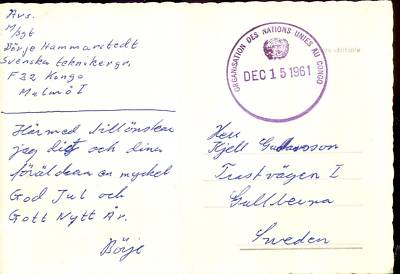 Avs.
M/Sgt
Börje Hammarstedt
Svenska teknikergr.
F 22 Kongo
Malmö I
Härmed tillönskar
jag dig och dina
föräldrar en mycket
God Jul och
Gott Nytt År.
Börje
ORGANISATION DES NATIONS UNIES AU CONGO
DEC 15 1961
Herr
Kjell Gustavsson
Trastvägen I
Gullberna
Sweden